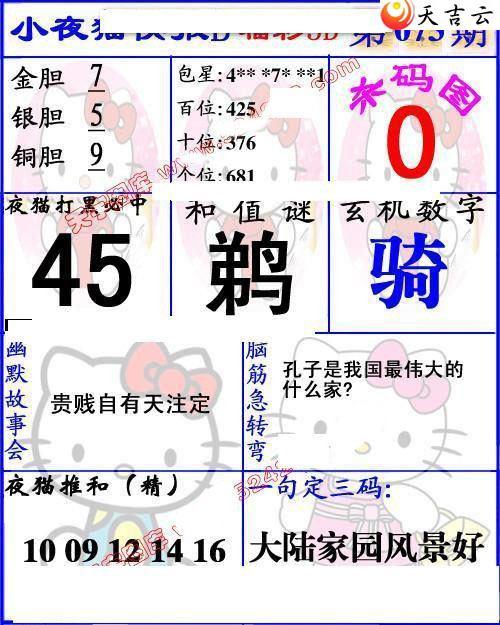 天吉云
小夜猫
3D
第075期
金胆 7
银胆 5
铜胆 9
包星:4** *7* **1
百位:425
十位:376
个位:681
杀码图
0
夜猫打黑必中
45
和值谜
鹈
玄机数字
骑
幽默故事会
贵贱自有天注定
脑筋急转弯
孔子是我国最伟大的
什么家?
夜猫推和（精）
10 09 12 14 16
一句定三码:
大陆家园风景好